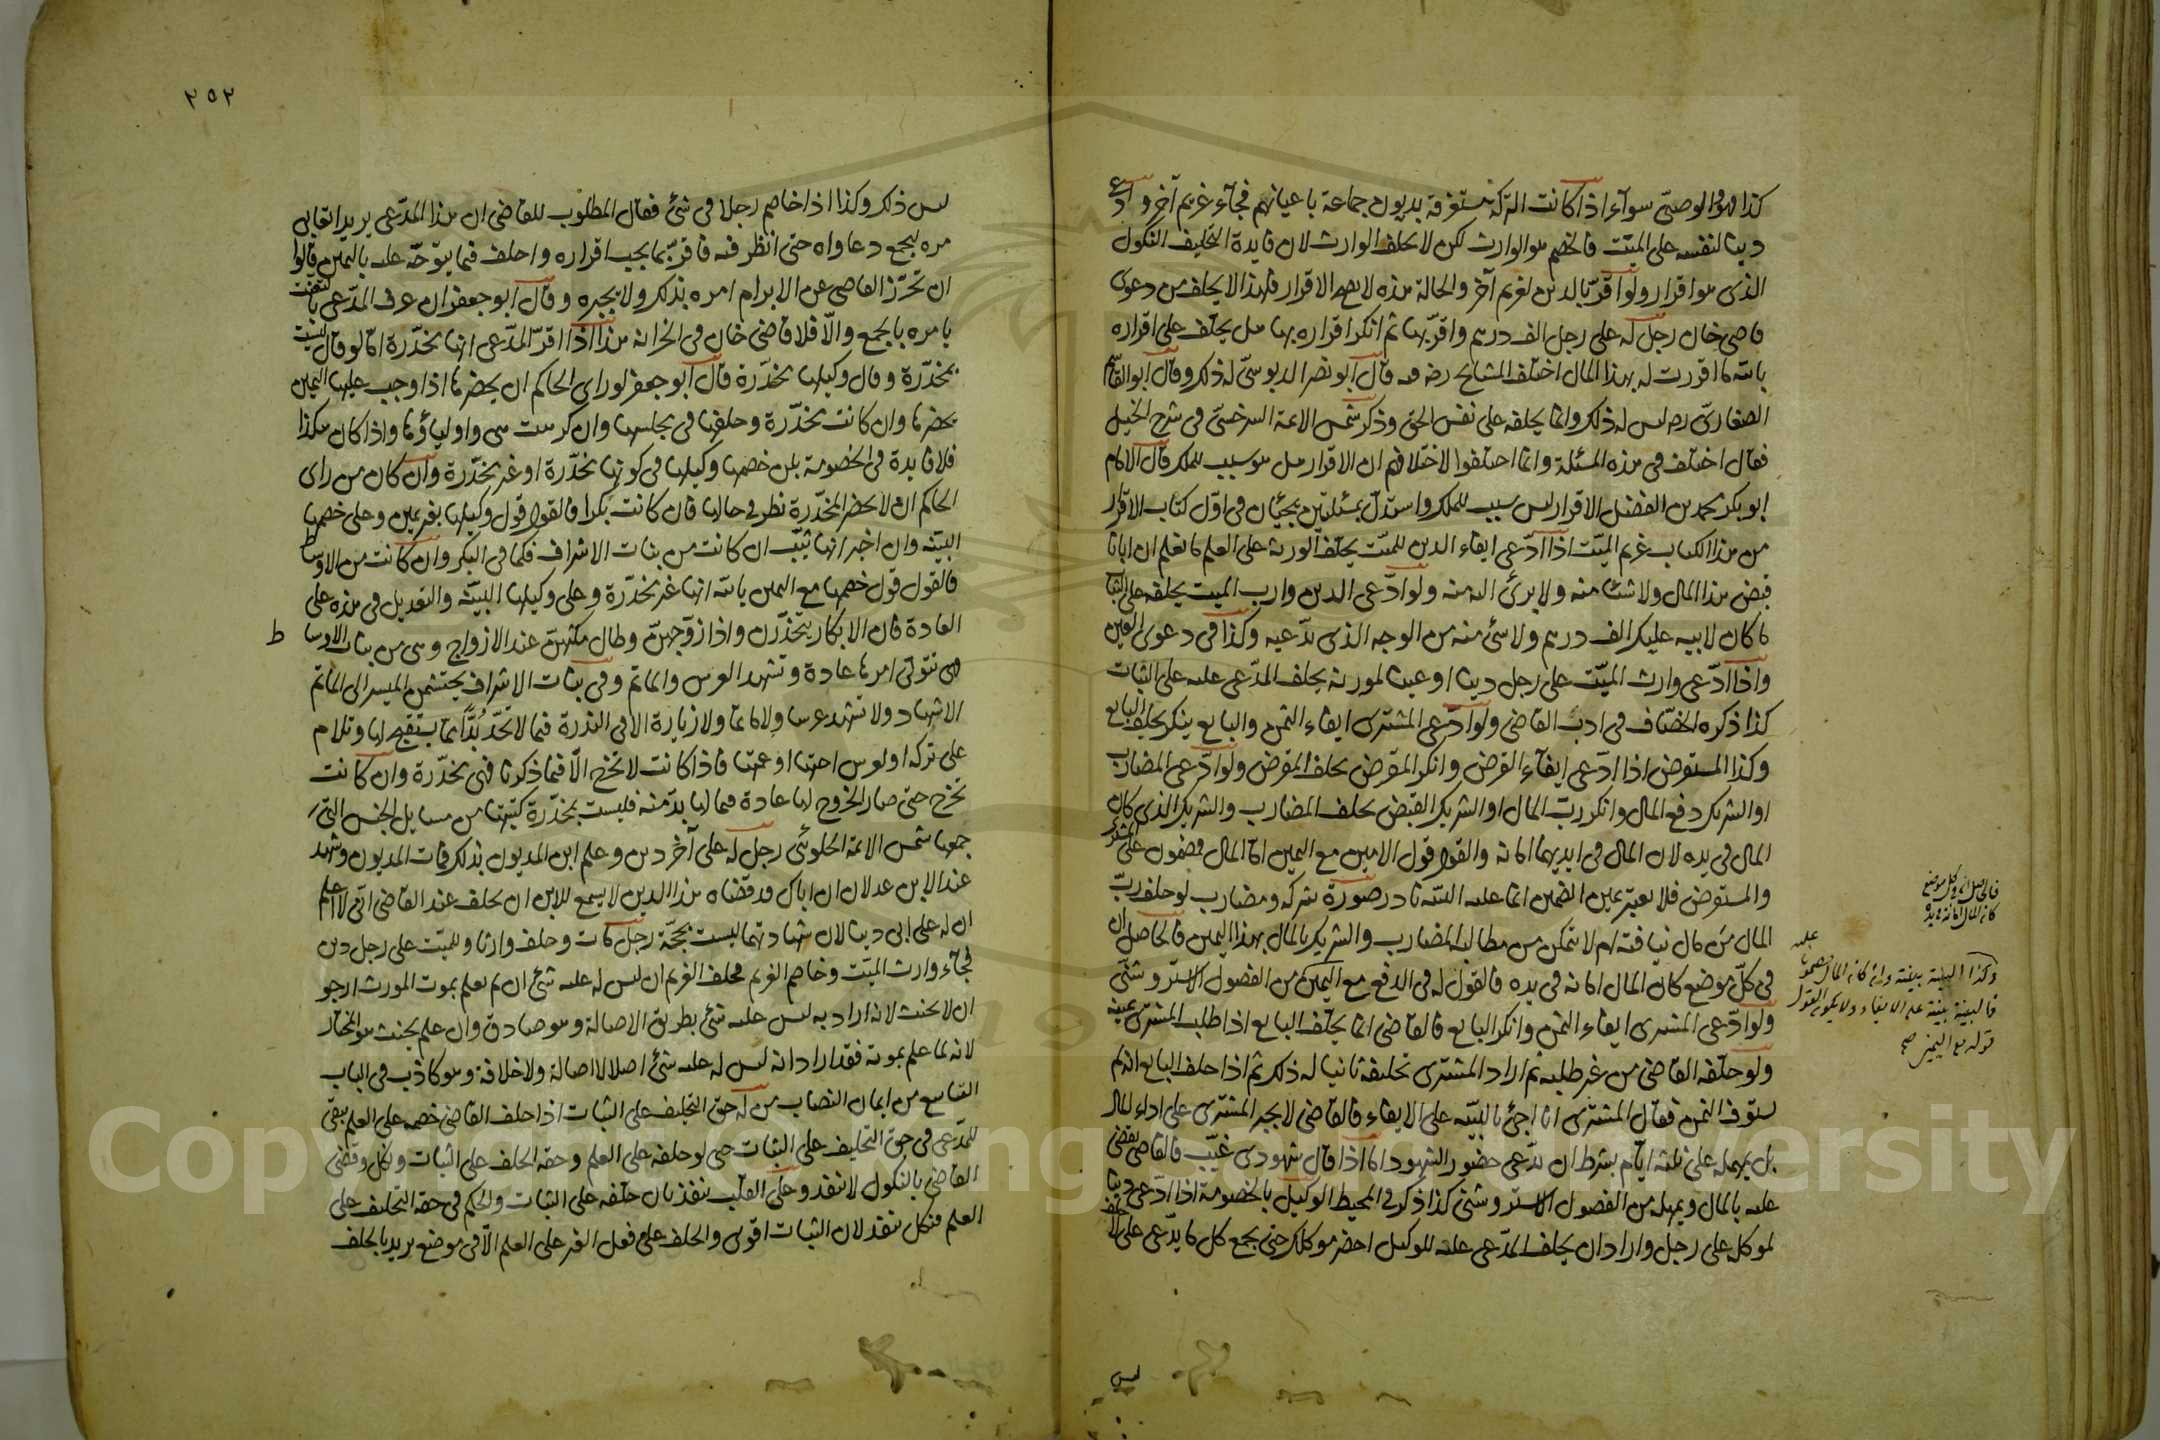 كذا هو في الوصي سوآء اذا كانت التركة مستغرقة بديون جماعة باعيانهم فجآء غريم آخر وادعى
دينا لنفسه على الميت فالخصم هو الوارث لكن لا يحلف الوارث لان فايدة التحليف النكول
الذى هو اقرار ولو اقر بالدين لغريم آخر والحالة هذه لا يصح الاقرار فلهذا لا يحلف من دعوى
قاضى خان رجل له على رجل الف درهم واقر بها ثم انكر اقراره بها هل يحلف على اقراره
بالله ما اقررت له بهذا المال اختلف المشايخ رضه فيه قال ابو نصر الدبوسى له ذلك وقال ابو القاسم
الصفار رحه ليس له ذلك وانما يحلفه على نفس الحق وذكر شمس الائمة السرخسى في شرح الحيل
فقال اختلف فى هذه المسئلة وانما اختلفوا لاختلافهم ان الاقرار هل هو سبب للملك قال الامام
ابو بكر محمد بن الفضل الاقرار ليس بسبب للملك واستدل بمسئلتين يجيئان فى اول كتاب الاقرار
من هذا الكتاب غريم الميت اذا ادعى ايفاء الدين للميت يحلف الورثة على العلم ما نعلم ان ابانا
قبض هذا المال ولا شيئا منه ولا برئ اليه منه ولو ادعى الدين وارث الميت يحلفه على البتات
ما كان لابيه عليك الف درهم ولا شئ منه من الوجه الذى يدعيه وكذا فى دعوى العين
واذا ادعى وارث الميت على رجل دينا او عينا لمورثه يحلف المدعى عليه على البتات
كذا ذكره الخصاف فى ادب القاضى ولو ادعى المشترى ايفاء الثمن والبايع ينكر يحلف البايع
وكذا المستقرض اذا ادعى ايفآء القرض وانكر المقرض يحلف المقرض ولو ادعى المضارب
او الشريك دفع المال وانكر رب المال او الشريك القبض يحلف المضارب والشريك الذى كان
المال فى يده لان المال فى ايديهما امانة والقول قول الامين مع اليمين اما المال فمضمون على المشترى
والمستقرض فلا يعتبر يمين الضمين انما عليه البينة نادر صورة شركة ومضارب لو حلف رب
المال لا يتمكن من مطالبة المضارب والشريك بالمال بهذا اليمين فالحاصل ان
فى كل موضع كان المال امانة فى يده فالقول له فى الدفع مع اليمين من الفصول الاستروشنى
ولو ادعى المشترى ايفاء الثمن وانكر البايع فالقاضى انما يحلف البايع اذا طلب المشترى يمينه
ولو حلفه القاضى من غير طلبه ثم اراد المشترى تحليفه ثانيا له ذلك ثم اذا حلف البايع انه لم
يستوف الثمن فقال المشترى انا اجئ بالبينة على الايفاء فالقاضى لا يجبر المشترى على اداء المال
بل يمهله على ثلثة ايام بشرط ان يدعى حضور الشهود اما اذا قال شهودى غيب فالقاضى يقضى
عليه بالمال ويمهله من الفصول الاستروشنى كذا ذكر فى المحيط الوكيل بالخصومة اذا ادعى دينا
لموكله على رجل واراد ان يحلف المدعى عليه للوكيل احضر موكلك حتى يجمع كل ما يدعى على
فالحاصل ان فى كل موضع
كان المال امانة فى يده
عليه
وكذا البينة بينة وان كان المال مضمونا
فالبينة بينة على الايفاء ولا يكون القول
قوله مع اليمين صح
ليس
٢٥٢
ليس ذلك وكذا اذا خاصم رجلا فى شئ فقال المطلوب للقاضى ان هذا المدعى يريد اتعابى
مره ليجمع دعاواه حتى انظر فيه فاقر بما يجب اقراره واحلف فيما يتوجه عليه باليمين قالوا
ان تحرز القاضى عن الابرام امره بذلك ولا يجبره وقال ابو جعفر ان عرف المدعى بالتعنت
يامره بالجمع والا فلا قاضى خان فى الخزانة هذا اذا اقر المدعى انها مخدرة اما لو قال ليست
بمخدرة وقال وكيلها مخدرة قال ابو جعفر لو راى الحاكم ان يحضرها اذا وجب عليها اليمين
يحضرها وان كانت مخدرة وحلفها فى مجلسها وان كرهت هى واولياؤها واذا كان هكذا
فلا فايدة فى الخصومة بين خصمها وكيلها فى كونها مخدرة او غير مخدرة وان كان من راى
الحاكم ان لا يحضر المخدرة نظر فى حالها فان كانت بكرا فالقول قول وكيلها بغير يمين وعلى خصمها
البينة وان اخبر انها ثيب ان كانت من بنات الاشراف فكما فى البكر وان كانت من الاوساط
فالقول قول خصمها مع اليمين بالله انها غير مخدرة وعلى وكيلها البينة والتعديل فى هذه على
العادة فان الابكار يتخدرن واذا زوجهن وطال مكثهن عند الازواج وهى من بنات الاوساط
هى تتولى امرها عادة وتشهد العرس والماتم وفى بنات الاشراف يحتشمن المسير الى الماتم
الاشهاد ولا تشهد عرسا ولا ماتما ولا زيارة الا فى الندرة فيما لا تجد بدا مما يستقبح لها وتلام
على تركه او لعرس اختها او عمتها فاذا كانت لا تخرج الا فيما ذكرنا فهى مخدرة وان كانت
تخرج حتى صار الخروج لها عادة فيما لها بد منه فليست بمخدرة كتبتها من مسايل الجنس التى
جمعها شمس الائمة الحلوانى رجل له على آخر دين وعلم ابن المديون بذلك فمات المديون وشهد
عند الابن عدلان ان اباك قد قضاه هذا الدين لا يسع للابن ان يحلف عند القاضى انى لا اعلم
ان له على ابى دينا لان شهادتهما ليست بحجة رجل مات وخلف وارثا وللميت على رجل دين
فجآء وارث الميت وخاصم الغريم فحلف الغريم ان ليس له عليه شئ ان لم يعلم بموت المورث ارجو
ان لا يحنث لانه اراد به ليس عليه شئ بطريق الاصالة وهو صادق وان علم يحنث هو المختار
لانه لما علم بموته فقد اراد انه ليس له عليه شئ اصلا لا اصالة ولا خلافة وهو كاذب فى الباب
التاسع من ايمان النصاب من له حق التحليف على البتات اذا حلف القاضى خصمه على العلم يبقى
للمدعى فى حق التحليف على البتات حتى لو حلفه على العلم وحقه الحلف على البتات ونكل وقضى
القاضى بالنكول لا ينفذ وعلى القلب ينفذ بان حلفه على البتات والحكم فى حقه التحليف على
العلم فنكل ينفذ لان البتات اقوى والحلف على فعل الغير على العلم الا فى موضع يريد بالحلف
ط